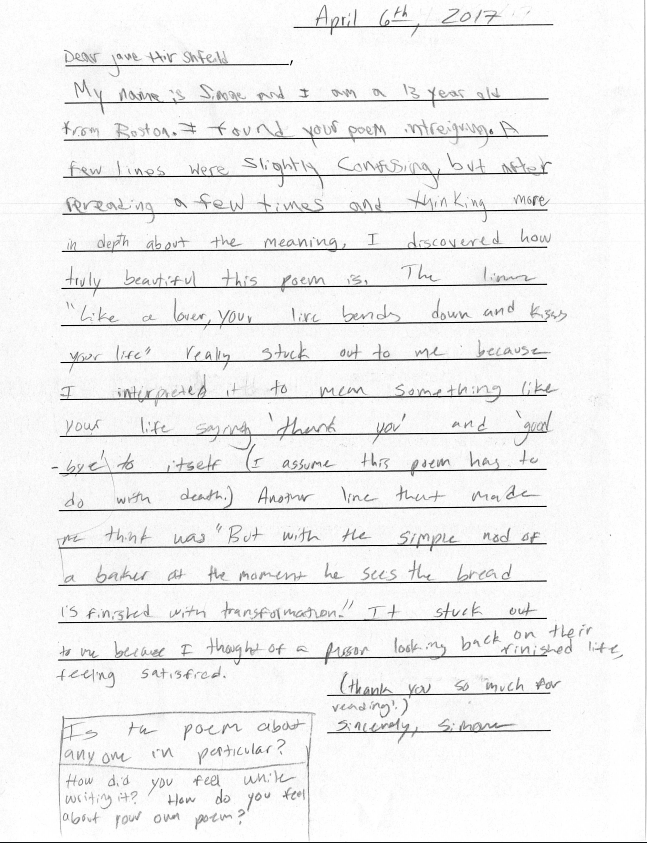 April 6th, 2017
Dear Jane Hirshfeild,
My name is Simone and I am a 13 year old
from Boston. I found your poem intreiguing. A
few lines were slightly confusing, but after
rereading a few times and thinking more
in depth about the meaning, I discovered how
truly beautiful this poem is. The lines
"Like a lover, your life bends down and kisses
your life" really stuck out to me because
I interpreted it to mean something like
your life saying 'thank you' and 'good
-bye' to itself (I assume this poem has to
do with death.) Another line that made
me think was "But with the simple nod of
a baker at the moment he sees the bread
is finished with transformation." It stuck out
to me because I thought of a person looking back on their
finished life,
feeling satisfied.
(thank you so much for
reading!)
Sincerely, Simone
Is the poem about
anyone in particular?
How did you feel while
writing it? How do you feel
about your own poem?